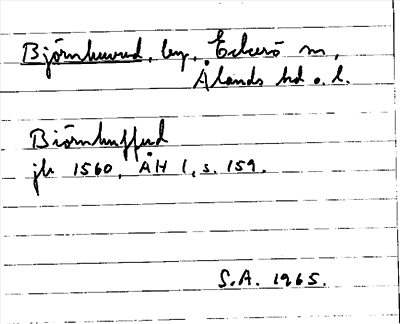 Björnhuvud, by, Eckerö sn,
Ålands hd o. l.
Biörnhuffud
jb 1560, ÅH 1, s. 159.
S.A. 1965.